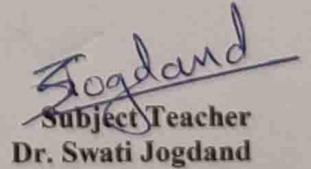 Jogdand
Subject Teacher
Dr. Swati Jogdand